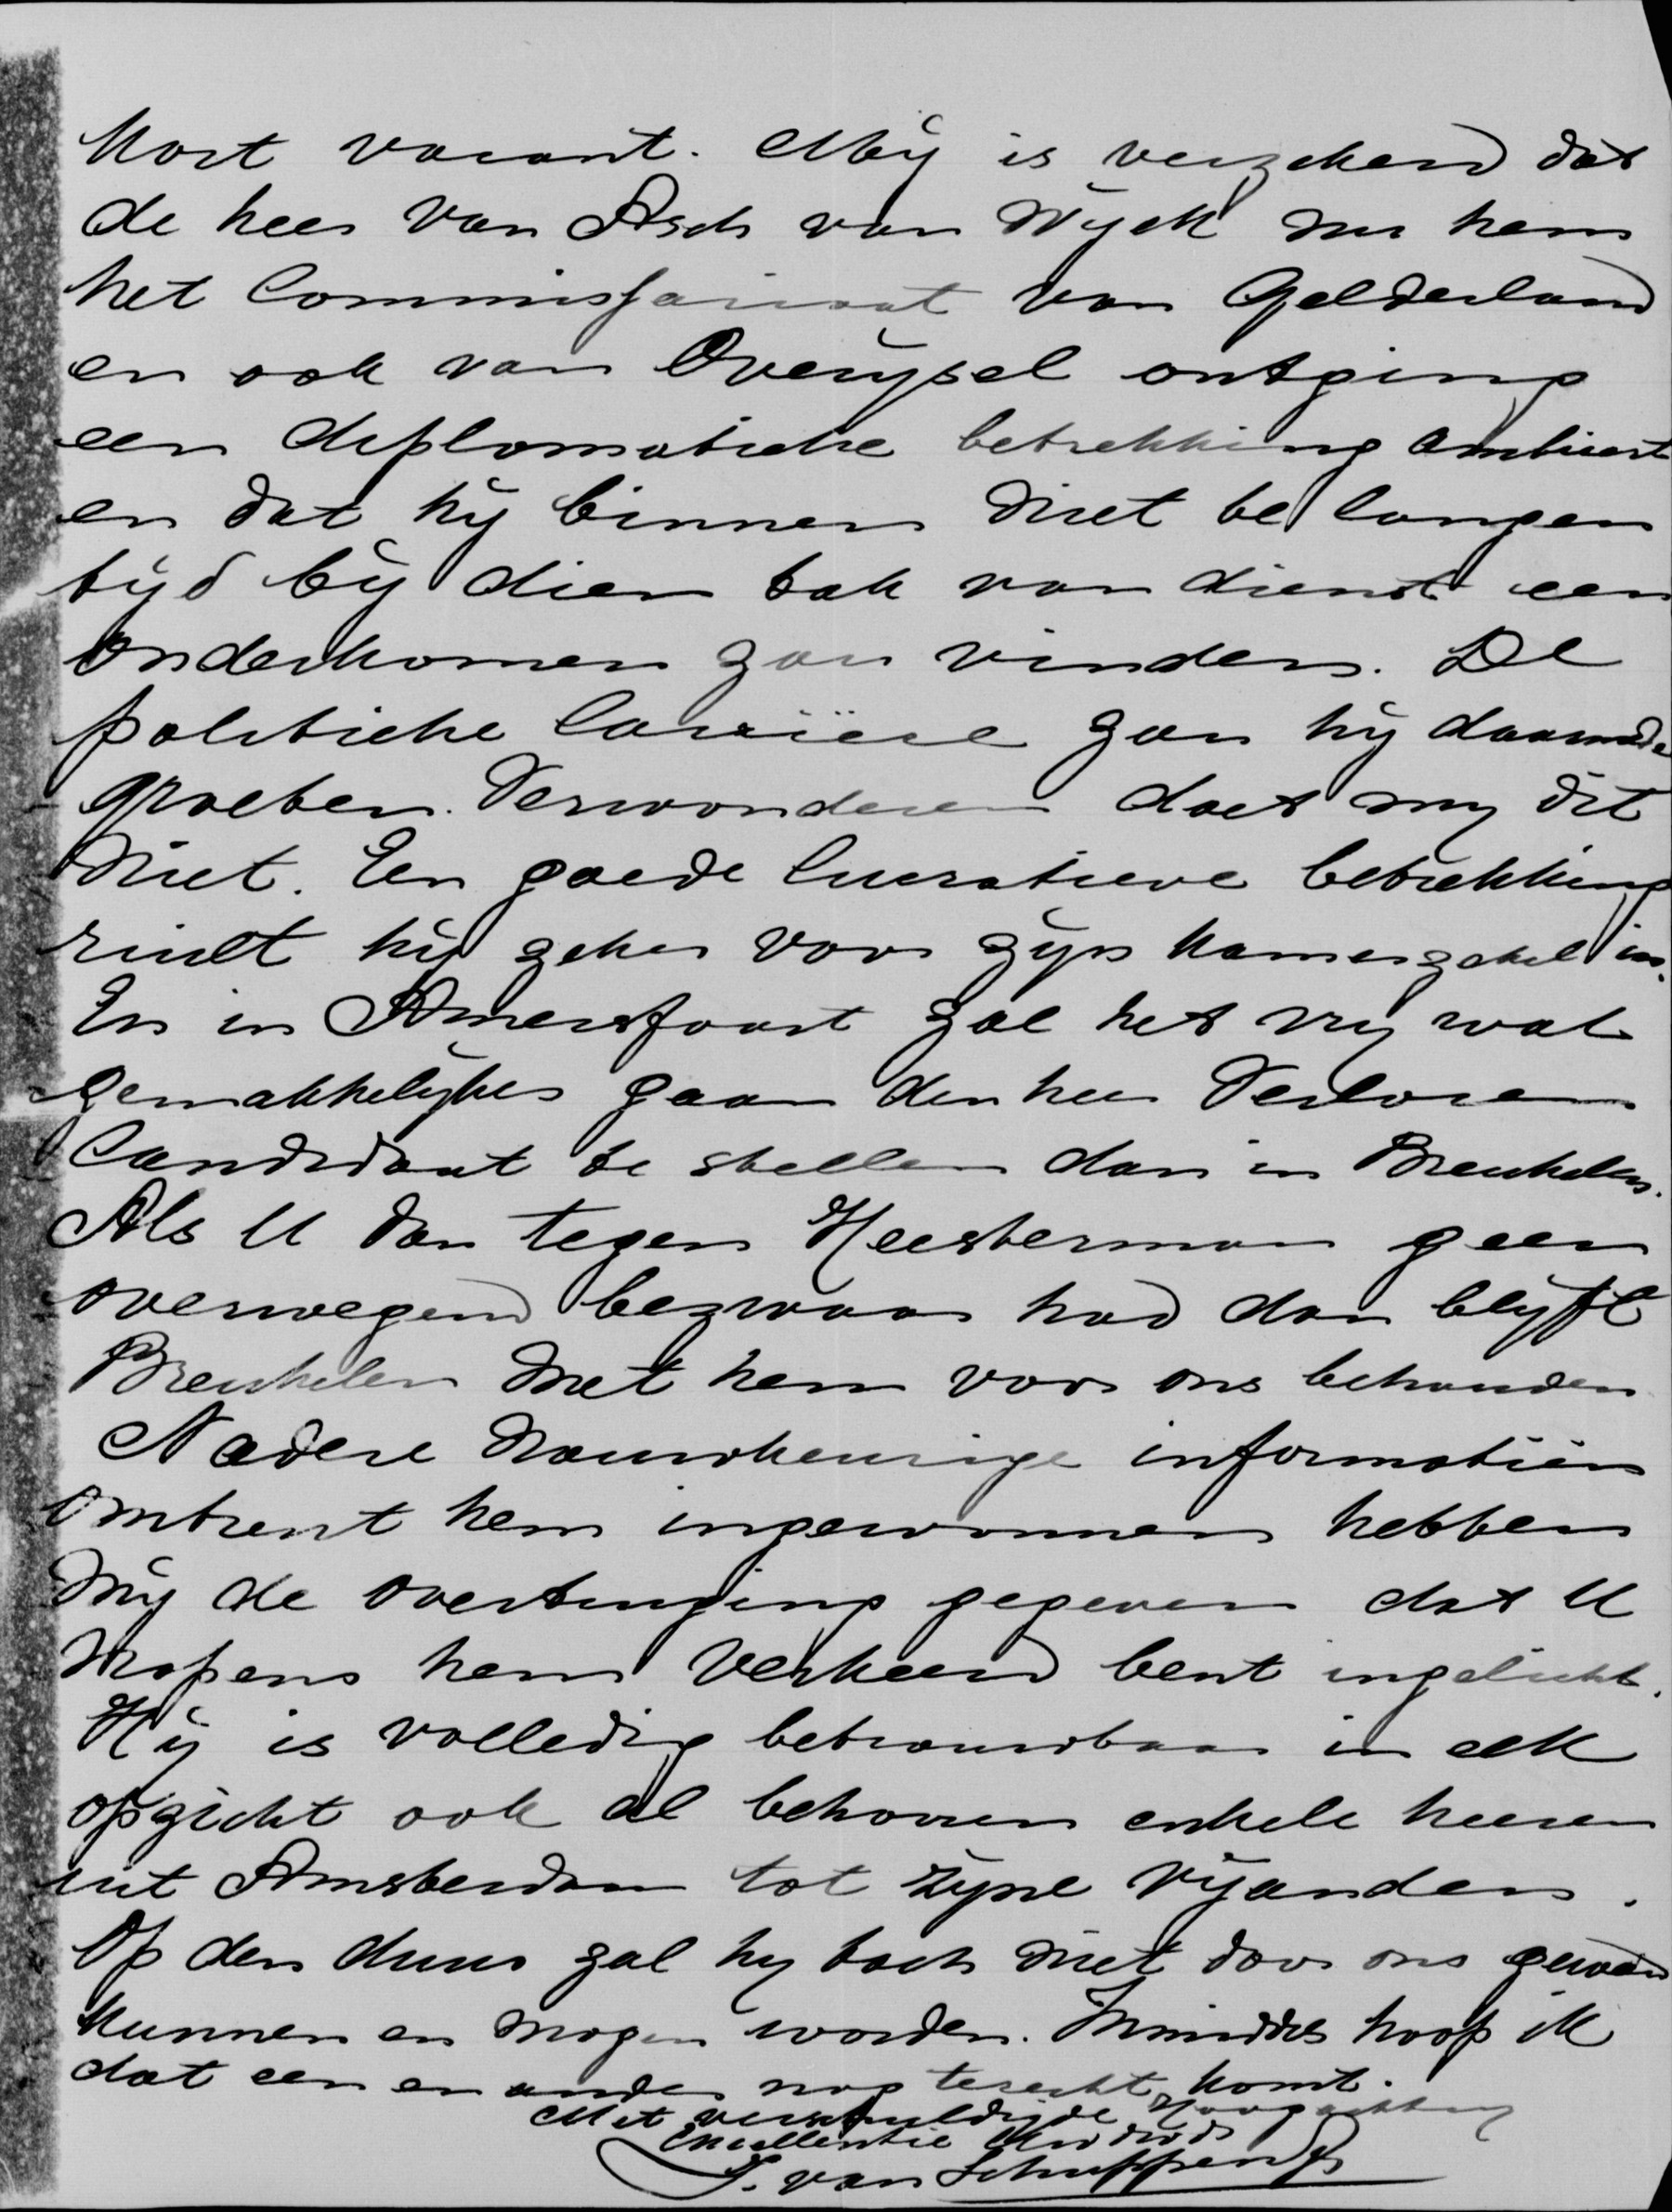 komt vacant. Mij is verzekerd dat
de heer van Asch van Wijck nu hem
het Commissariaat van Gelderland
en ook van Overijsel ontging
een diplomatieke betrekking ambieert
en dat hij binnen niet te langen
tijd bij dien tak van dienst een
onderkomen zou vinden. De
politieke Carrière zou hij daarmede
groeten. Verwonderen doet mij dit
niet. Een goede lucratieve betrekking
ruilt hij zeker voor zijn Kamerzetel in.
En in Amersfoort zal het vrij wat
gemakkelijker gaan den heer Verloren
Candidaat te stellen dan in Breukelen.
Als U dan tegen Heesterman geen
overwegend bezwaar had dan blijft
Breukelen met hem voor ons behouden
Nadere nauwkeurige informatiën
omtrent hem ingewonnen hebben
mij de overtuiging gegeven dat U
nopens hem verkeerd bent ingelicht.
Hij is volledig betrouwbaar in elk
opzicht ook al behooren enkele heeren
uit Amsterdam tot zijne vijanden.
Op den duur zal hij toch niet door ons geweerd
kunnen en mogen worden. Inmiddels hoop ik
dat een en ander nog terecht komt.
Met verschuldigde Hoogachting
Excellentie Uw dw dr
J. van Schuppen